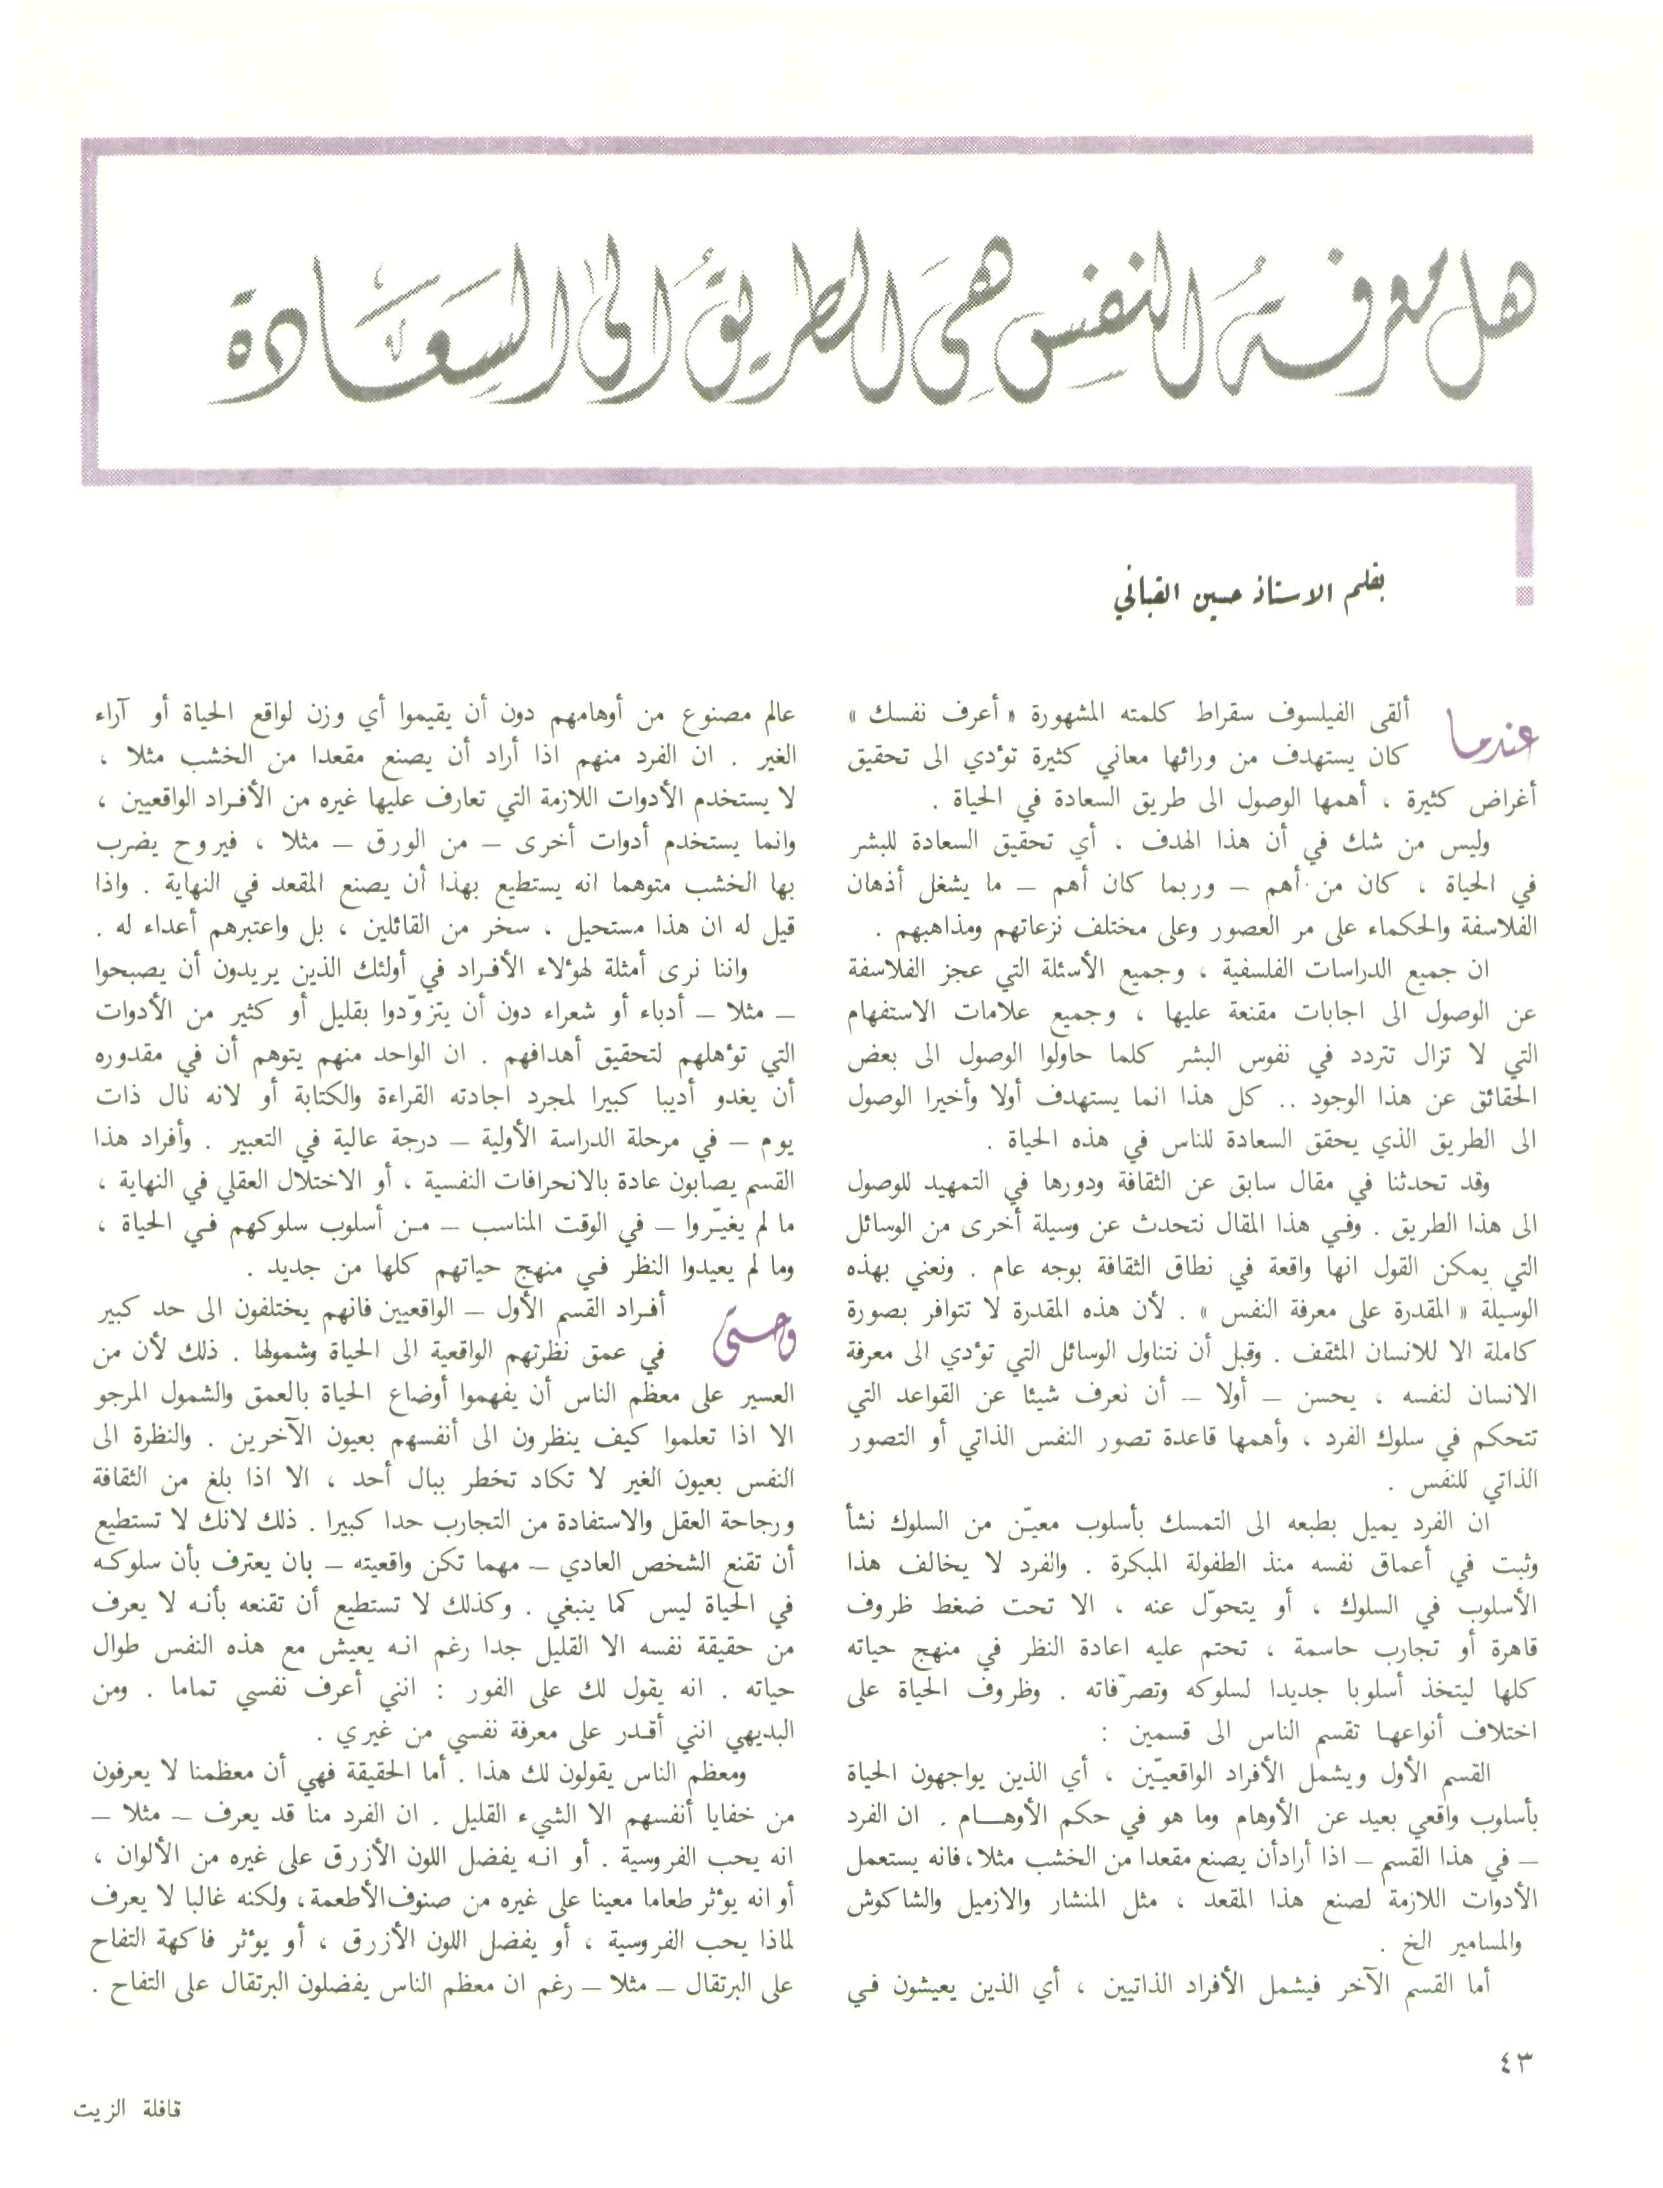 هل معرفة النفس هي الطريق الى السعادة
بقلم الاستاذ حسين القباني
عندما ألقى الفيلسوف سقراط كلمته المشهورة « أعرف نفسك »
كان يستهدف من ورائها معاني كثيرة تؤدي الى تحقيق
أغراض كثيرة ، أهمها الوصول الى طريق السعادة في الحياة .
وليس من شك في أن هذا الهدف ، أي تحقيق السعادة للبشر
في الحياة ، كان من أهم – وربما كان أهم – ما يشغل أذهان
الفلاسفة والحكماء على مر العصور وعلى مختلف نزعاتهم ومذاهبهم .
ان جميع الدراسات الفلسفية ، وجميع الأسئلة التي عجز الفلاسفة
عن الوصول الى اجابات مقنعة عليها ، وجميع علامات الاستفهام
التي لا تزال تتردد في نفوس البشر كلما حاولوا الوصول الى بعض
الحقائق عن هذا الوجود .. كل هذا انما يستهدف أولا وأخيرا الوصول
الى الطريق الذي يحقق السعادة للناس في هذه الحياة .
وقد تحدثنا في مقال سابق عن الثقافة ودورها في التمهيد للوصول
الى هذا الطريق . وفي هذا المقال نتحدث عن وسيلة أخرى من الوسائل
التي يمكن القول انها واقعة في نطاق الثقافة بوجه عام . ونعني بهذه
الوسيلة « المقدرة على معرفة النفس » . لأن هذه المقدرة لا تتوافر بصورة
كاملة الا للانسان المثقف . وقبل أن نتناول الوسائل التي تؤدي الى معرفة
الانسان لنفسه ، يحسن – أولا – أن نعرف شيئا عن القواعد التي
تتحكم في سلوك الفرد ، وأهمها قاعدة تصور النفس الذاتي أو التصور
الذاتي للنفس .
ان الفرد يميل بطبعه الى التمسك بأسلوب معيّن من السلوك نشأ
وثبت في أعماق نفسه منذ الطفولة المبكرة . والفرد لا يخالف هذا
الأسلوب في السلوك ، أو يتحوّل عنه ، الا تحت ضغط ظروف
قاهرة أو تجارب حاسمة ، تحتم عليه اعادة النظر في منهج حياته
كلها ليتخذ أسلوبا جديدا لسلوكه وتصرّفاته . وظروف الحياة على
اختلاف أنواعها تقسم الناس الى قسمين :
القسم الأول ويشمل الأفراد الواقعيّين ، أي الذين يواجهون الحياة
بأسلوب واقعي بعيد عن الأوهام وما هو في حكم الأوهام . ان الفرد
– في هذا القسم – اذا أراد أن يصنع مقعدا من الخشب مثلا، فانه يستعمل
الأدوات اللازمة لصنع هذا المقعد ، مثل المنشار والازميل والشاكوش
والمسامير الخ .
أما القسم الآخر فيشمل الأفراد الذاتيين ، أي الذين يعيشون في
عالم مصنوع من أوهامهم دون أن يقيموا أي وزن لواقع الحياة أو آراء
الغير . ان الفرد منهم اذا أراد أن يصنع مقعدا من الخشب مثلا ،
لا يستخدم الأدوات اللازمة التي تعارف عليها غيره من الأفراد الواقعيين ،
وانما يستخدم أدوات أخرى – من الورق – مثلا ، فيروح يضرب
بها الخشب متوهما انه يستطيع بهذا أن يصنع المقعد في النهاية . واذا
قيل له ان هذا مستحيل ، سخر من القائلين ، بل واعتبرهم أعداء له .
واننا نرى أمثلة لهؤلاء الأفراد في أولئك الذين يريدون أن يصبحوا
– مثلا – أدباء أو شعراء دون أن يتزوّدوا بقليل أو كثير من الأدوات
التي تؤهلهم لتحقيق أهدافهم . ان الواحد منهم يتوهم أن في مقدوره
أن يغدو أديبا كبيرا لمجرد اجادته القراءة والكتابة أو لانه نال ذات
يوم – في مرحلة الدراسة الأولية – درجة عالية في التعبير . وأفراد هذا
القسم يصابون عادة بالانحرافات النفسية ، أو الاختلال العقلي في النهاية ،
ما لم يغيّروا – في الوقت المناسب – من أسلوب سلوكهم في الحياة ،
وما لم يعيدوا النظر في منهج حياتهم كلها من جديد .
وحتى أفراد القسم الأول – الواقعيين فانهم يختلفون الى حد كبير
في عمق نظرتهم الواقعية الى الحياة وشمولها . ذلك لأن من
العسير على معظم الناس أن يفهموا أوضاع الحياة بالعمق والشمول المرجو
الا اذا تعلموا كيف ينظرون الى أنفسهم بعيون الآخرين . والنظرة الى
النفس بعيون الغير لا تكاد تخطر ببال أحد ، الا اذا بلغ من الثقافة
ورجاحة العقل والاستفادة من التجارب حدا كبيرا . ذلك لانك لا تستطيع
أن تقنع الشخص العادي – مهما تكن واقعيته – بان يعترف بأن سلوكه
في الحياة ليس كما ينبغي . وكذلك لا تستطيع أن تقنعه بأنه لا يعرف
من حقيقة نفسه الا القليل جدا رغم انه يعيش مع هذه النفس طوال
حياته . انه يقول لك على الفور : انني أعرف نفسي تماما . ومن
البديهي انني أقدر على معرفة نفسي من غيري .
ومعظم الناس يقولون لك هذا . أما الحقيقة فهي أن معظمنا لا يعرفون
من خفايا أنفسهم الا الشيء القليل . ان الفرد منا قد يعرف – مثلا –
انه يحب الفروسية . أو انه يفضل اللون الأزرق على غيره من الألوان ،
أو انه يؤثر طعاما معينا على غيره من صنوف الأطعمة، ولكنه غالبا لا يعرف
لماذا يحب الفروسية ، أو يفضل اللون الأزرق ، أو يؤثر فاكهة التفاح
على البرتقال – مثلا – رغم ان معظم الناس يفضلون البرتقال على التفاح .
٤٣
قافلة الزيت